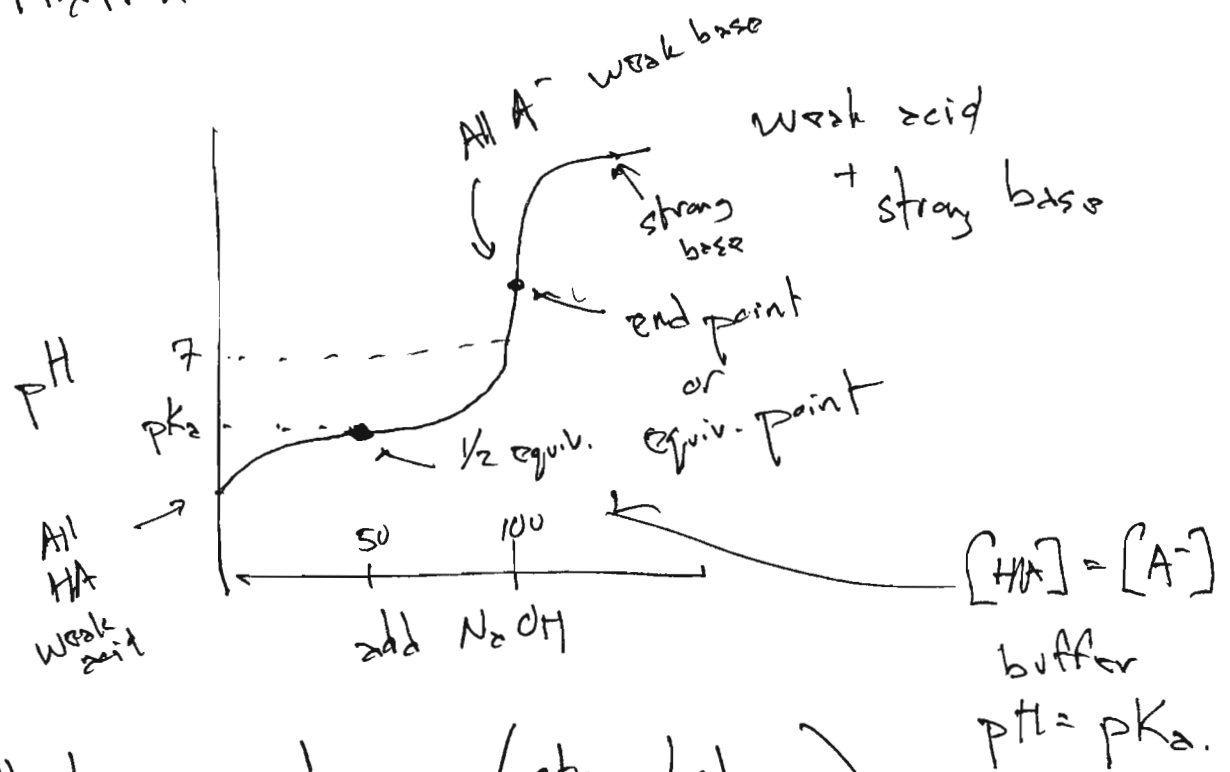 All A⁻ weak base
weak acid
+ strong base
strong
base
end point
or
equiv. point
pH
7
pKa
1/2 equiv.
All
HA
weak
acid
50
100
add NaOH
[HA] = [A⁻]
buffer
pH = pKa.